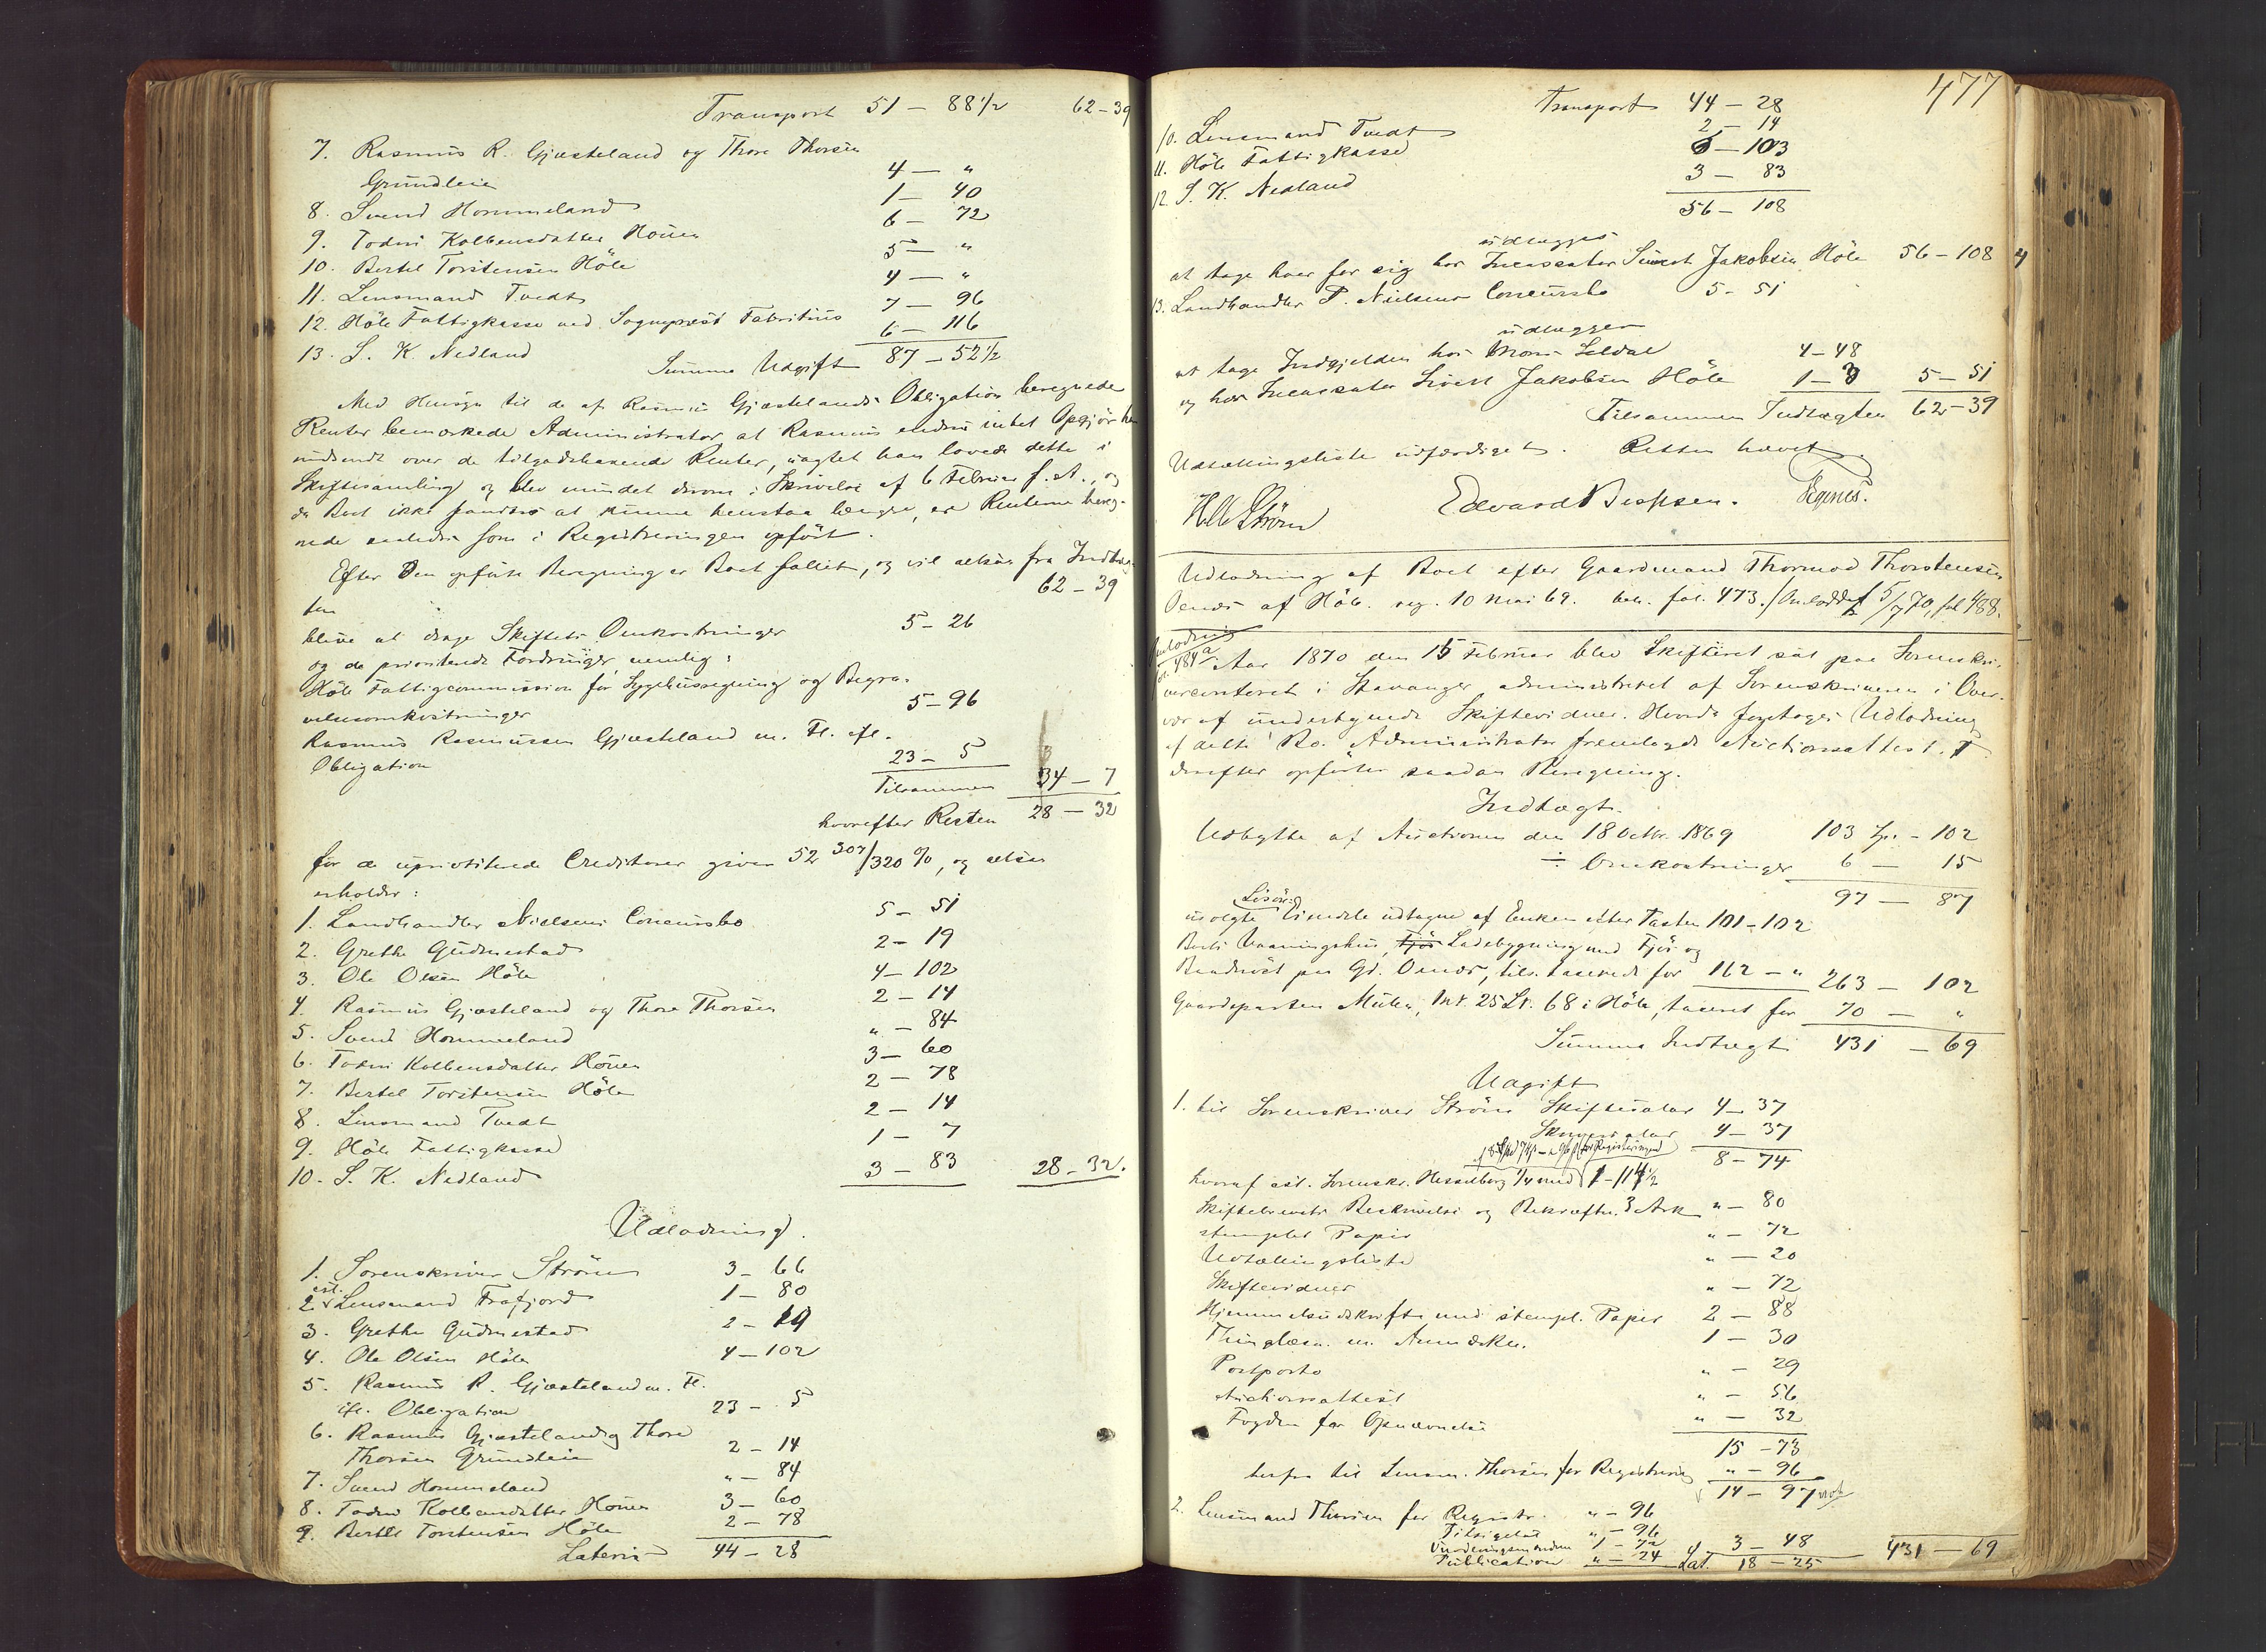 Transport 51 – 88 1/2 62 – 39
7. Rasmus R. Gjæsteland og Thore Thorsen
Grundleie 4 – "
8. Svend Hommeland 1 – 40
9. Todne Kolbensdatter Houen 6 – 72
10. Bertel Torstensen Höle 5 – "
11. Lensmand Tvedt 4 – "
12. Höle Fattigkasse ved Sogneprest Fabritius 7 – 96
13. S. K. Nedland 6 – 116
Summa Udgift 87 – 52 1/2
Med Hensyn til de af Rasmus Gjæstelands Obligation beregnede
Renter bemærkede Administrator at Rasmus endnu intet Opgjör har
indsendt over de tilgodehavende Renter, uagtet han lovede dette i
Skiftesamling og blev mindet derom i Skrivelse af 6 Februar f. A., og
da Boet ikke fandtes at kunne henstaa længre, er Renterne bereg-
nede saaledes som i Registreringen opfört.
Efter den opförte Beregning er Boet fallit, og vil altsaa fra Indtæg-
ten 62 – 39
blive at drage Skiftets Omkostninger 5 – 26
og de prioriterede Fordringer nemlig:
Höle Fattigcommission for Sygehusregning og Begra-
velsesomkostninger 5 – 96
Rasmus Rasmussen Gjæsteland m. Fl. ifl.
Obligation 23 – 5
Tilsammen 34 – 7
hvorefter Resten 28 – 32
for de uprioriterede Creditorer giver 52 307/320 %, og altsaa
erholder:
1. Landhandler Nielsens Concursbo 5 – 51
2. Grethe Gudmestad 2 – 19
3. Ole Olsen Höle 4 – 102
4. Rasmus Gjæsteland og Thore Thorsen 2 – 14
5. Svend Hommeland " – 84
6. Todne Kolbensdatter Houen 3 – 60
7. Bertel Torstensen Höle 2 – 78
8. Lensmand Tvedt 2 – 14
9. Höle Fattigkasse 1 – 7
10. S. K. Nedland 3 – 83 28 – 32.
Udlodning.
1. Sorenskriver Ström 3 – 66
2. Lensmand Frafjord 1 – 80
3. Grethe Gudmestad 2 – 19
4. Ole Olsen Höle 4 – 102
5. Rasmus R. Gjæsteland m. Fl.
ifl. Obligation 23 – 5
6. Rasmus Gjæsteland og Thore
Thorsen Grundleie 2 – 14
7. Svend Hommeland " – 84
8. Todne Kolbensdatter Houen 3 – 60
9. Bertel Torstensen Höle 2 – 78
Lateris 44 – 28
477
Transport 44 – 28
10. Lensmand Tvedt 2 – 14
11. Höle Fattigkasse 6 – 103
12. S. K. Nedland 3 – 83
56 – 108
udlægges
at tage hver for sig hos Incassator Sivert Jakobsen Höle 56 – 108
13. Landhandler P. Nielsens Concursbo 5 – 51
udlægges
at tage Indgjelden hos Mons Seldal 4 – 48
og hos Incassator Sivert Jakobsen Höle 1 – 3 5 – 51
Tilsammen Indtægten 62 – 39
Udtællingsliste udfærdiget. Retten hævet.
H. Ström Edvard Bessesen. Tegnes.
Udlodning af Boet efter Gaardmand Thormod Thorstensen
Oenæs af Höle. reg. 10 Mai 69. beh. fol. 473. / Omlodd. 5/7 70, fol. 488.
Omlodning
fol. 484 a
Aar 1870 den 15 Februar blev Skifteret sat paa Sorenskri-
vercontoret i Stavanger administreret af Sorenskriveren i Over-
vær af undertegnede Skiftevidner. Hvorda foretoges Udlodning
af dette Bo. Administrator fremlagde Auctionsattest.
derefter opförtes saadan Beregning.
Indtægt.
Udbytte af Auctionen den 18 Octbr. 1869 103 Sp. – 102
÷ Omkostninger 6 – 15
97 – 87
Lösöre
usolgte Eiendele udtagne af Enken efter Taxten 101 – 102
Boets Vaaningshus, Fjös Ladebygning med Fjös og
Brudröst paa Gd. Oenæs, tils. taxerede for 162 – " 263 – 102
Gaardsparten Mulen, M. N. 25 L. N. 68 i Höle, taxeret for 70 – "
Summa Indtægt 431 – 69
Udgift
1. til Sorenskriver Ström Skiftesalær 4 – 37
Skriversalær 4 – 37
8 – 74
hvoraf cst. Sorenskr. Hesselberg 1/4 med 1 – 114 1/2
Skiftebrevets Beskrivelse og Bekræftn. 3 Ark " – 80
stemplet Papir " – 72
Udtællingsliste " – 20
Skiftevidner " – 72
Hjemmelsudskrift med stempl. Papir 2 – 88
Thinglæsn. m. Anmærkn. 1 – 30
Postporto " – 29
Auctionsattest " – 56
Fogden for Opnævnelse " – 32
15 – 73
herfra til Lensm. Thorsen for Registrering " – 96
14 – 97
2. Lensmand Thorsen for Registr. " – 96
Tilsigelse " – 96
Vurderingsmændene 1 – 72
Publication " – 24 3 – 48
Lat. 18 – 25 431 – 69